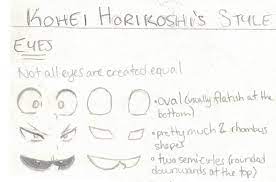 KOHEI HORIKOSHI'S STYLE
EYES
Not all eyes are created equal
• oval (usually flatish at the
bottom)
• pretty much 2 rhombus
shapes
• two semi circles (rounded
downwards at the top)